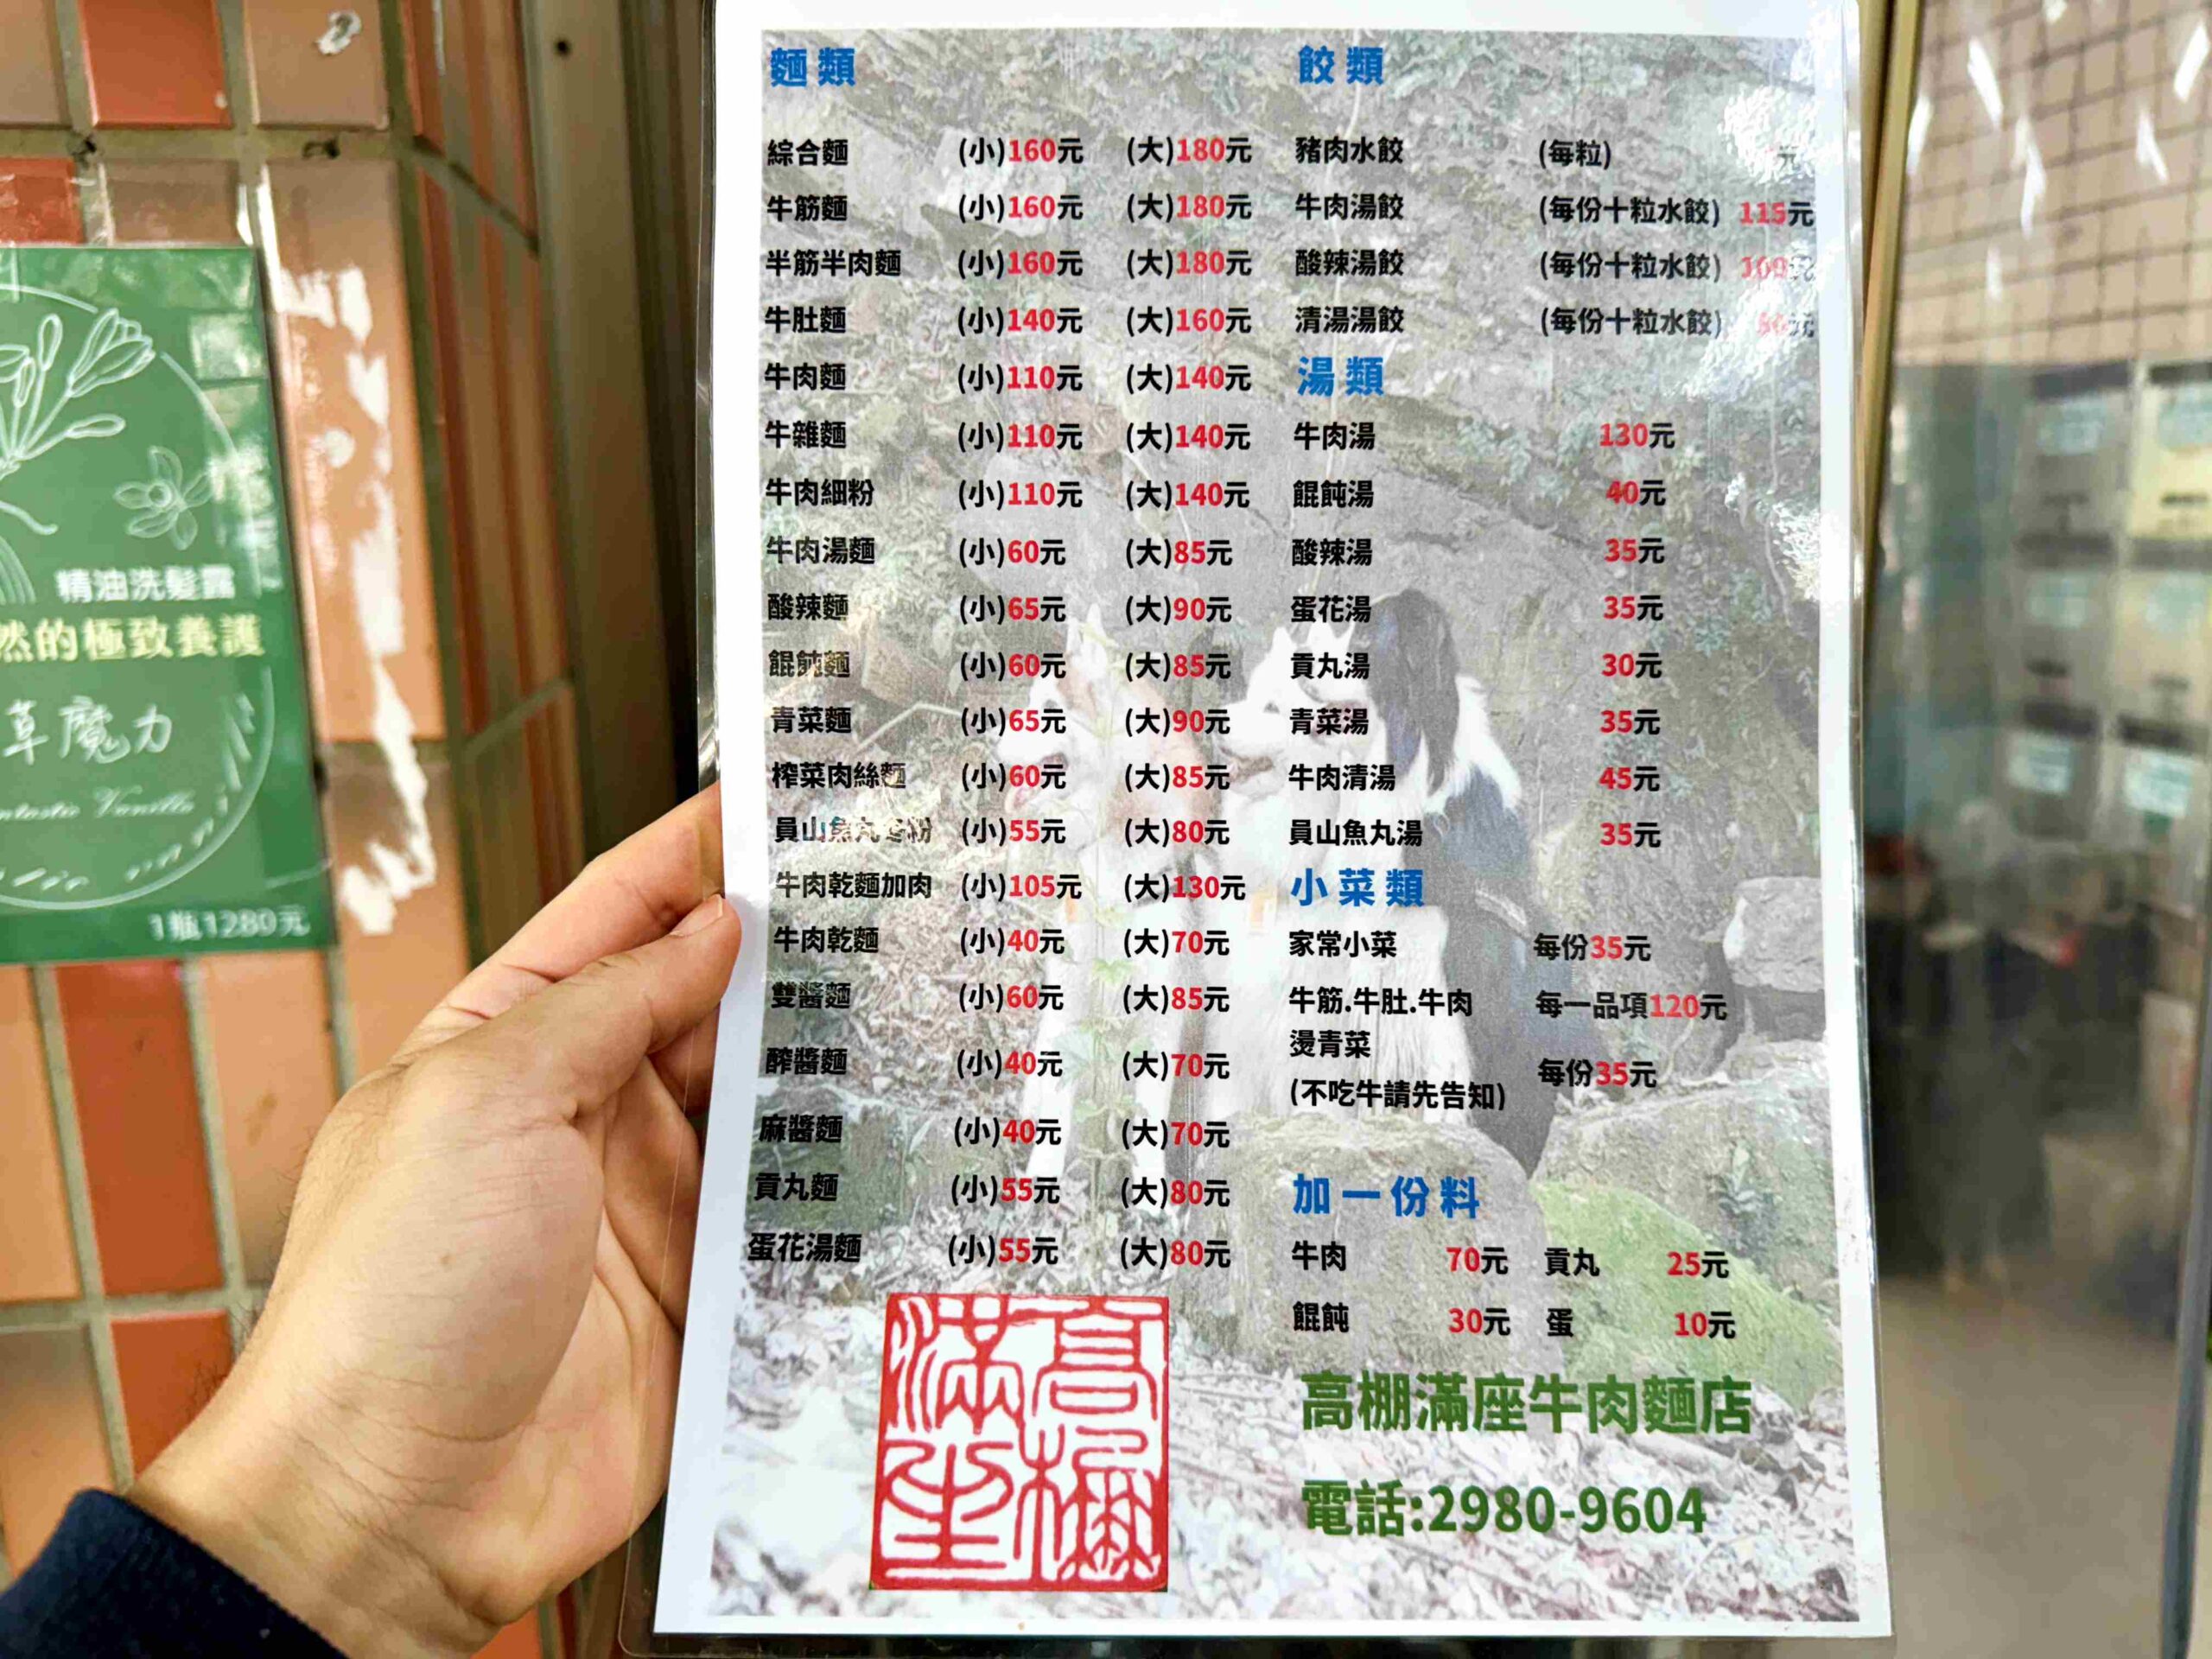 麵類
綜合麵 (小)160元 (大)180元
牛筋麵 (小)160元 (大)180元
半筋半肉麵 (小)160元 (大)180元
牛肚麵 (小)140元 (大)160元
牛肉麵 (小)110元 (大)140元
牛雜麵 (小)110元 (大)140元
牛肉細粉 (小)110元 (大)140元
牛肉湯麵 (小)60元 (大)85元
酸辣麵 (小)65元 (大)90元
餛飩麵 (小)60元 (大)85元
青菜麵 (小)65元 (大)90元
榨菜肉絲麵 (小)60元 (大)85元
員山魚丸冬粉 (小)55元 (大)80元
牛肉乾麵加肉 (小)105元 (大)130元
牛肉乾麵 (小)40元 (大)70元
雙醬麵 (小)60元 (大)85元
醡醬麵 (小)40元 (大)70元
麻醬麵 (小)40元 (大)70元
貢丸麵 (小)55元 (大)80元
蛋花湯麵 (小)55元 (大)80元
餃類
豬肉水餃 (每粒) 元
牛肉湯餃 (每份十粒水餃) 115元
酸辣湯餃 (每份十粒水餃) 元
清湯湯餃 (每份十粒水餃) 元
湯類
牛肉湯 130元
餛飩湯 40元
酸辣湯 35元
蛋花湯 35元
貢丸湯 30元
青菜湯 35元
牛肉清湯 45元
員山魚丸湯 35元
小菜類
家常小菜 每份35元
牛筋.牛肚.牛肉 每一品項120元
燙青菜 每份35元
(不吃牛請先告知)
加一份料
牛肉 70元 貢丸 25元
餛飩 30元 蛋 10元
高棚滿座牛肉麵店
電話:2980-9604
高棚
滿座
精油洗髮露
然的極致養護
草魔力
Vanilla
1瓶1280元